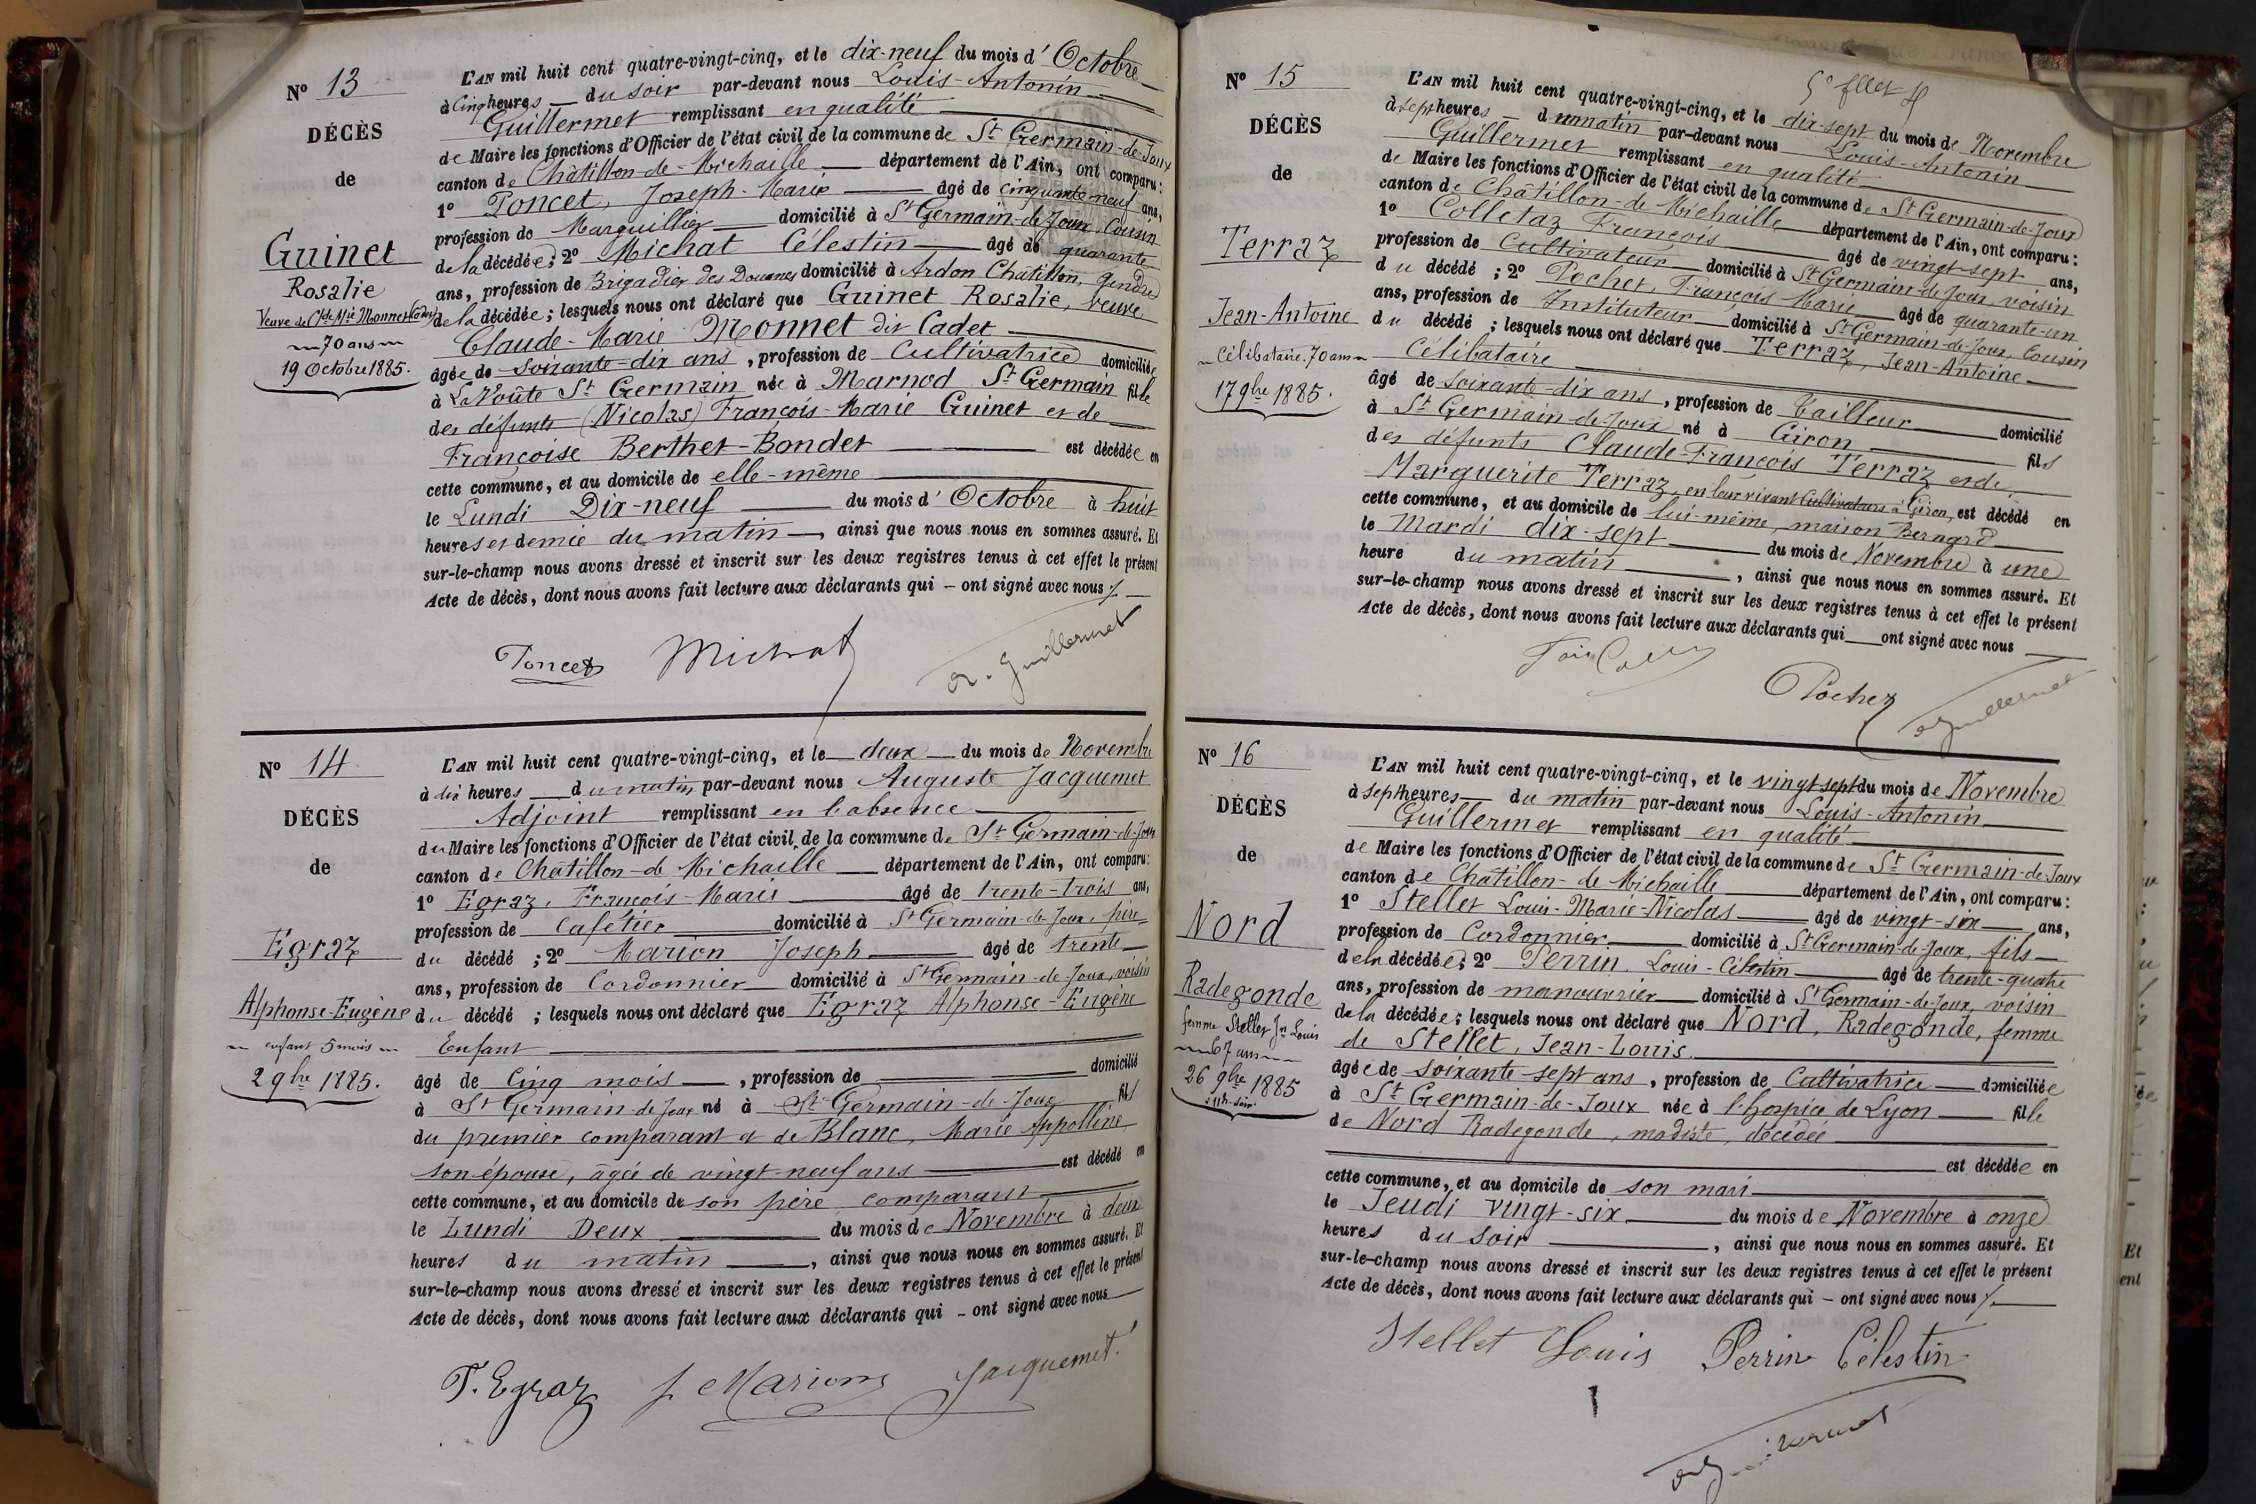 N° 13
DÉCÈS
de
Guinet
Rosalie
Veuve de Cl de Mie Monnet Cadet
70 ans
19 Octobre 1885.
L'AN mil huit cent quatre-vingt-cinq, et le dix-neuf du mois d'Octobre
à cinq heures du soir par-devant nous Louis-Antonin
Guillermet remplissant en qualité
de Maire les fonctions d'Officier de l'état civil de la commune de St Germain-de-Joux
canton de Châtillon-de-Michaille département de l'Ain, ont comparu :
1° Poncet, Joseph-Marie âgé de cinquante-neuf ans,
profession de Marguillier domicilié à St Germain-de-Joux, Cousin
de la décédée; 2° Michat Célestin âgé de quarante
ans, profession de Brigadier des Douanes domicilié à Ardon Châtillon, gendre
de la décédée; lesquels nous ont déclaré que Guinet Rosalie, veuve
Claude-Marie Monnet dit Cadet
âgée de soixante-dix ans, profession de Cultivatrice domiciliée
à La Voûte St Germain née à Marnod St Germain fille
des défunts (Nicolas) François-Marie Guinet et de
Françoise Berthet-Bondet est décédée en
cette commune, et au domicile de elle-même
le Lundi Dix-neuf du mois d'Octobre à huit
heures et demie du matin, ainsi que nous nous en sommes assuré. Et
sur-le-champ nous avons dressé et inscrit sur les deux registres tenus à cet effet le présent
Acte de décès, dont nous avons fait lecture aux déclarants qui – ont signé avec nous
Poncet Michat A. Guillermet
N° 14
DÉCÈS
de
Egraz
Alphonse-Eugène
enfant 5 mois
2 9bre 1885.
L'AN mil huit cent quatre-vingt-cinq, et le deux du mois de Novembre
à dix heures du matin par-devant nous Auguste Jacquemet
Adjoint remplissant en l'absence
du Maire les fonctions d'Officier de l'état civil de la commune de St Germain-de-Joux
canton de Châtillon-de-Michaille département de l'Ain, ont comparu :
1° Egraz, François-Marie âgé de trente-trois ans,
profession de Cafetier domicilié à St Germain-de-Joux, père
du décédé ; 2° Marion Joseph âgé de trente
ans, profession de Cordonnier domicilié à St Germain-de-Joux, voisin
du décédé ; lesquels nous ont déclaré que Egraz Alphonse-Eugène
Enfant
âgé de Cinq mois, profession de domicilié
à St Germain-de-Joux né à St Germain-de-Joux fils
du premier comparant et de Blanc, Marie Appolline,
son épouse, âgée de vingt-neuf ans est décédé en
cette commune, et au domicile de son père comparant
le Lundi Deux du mois de Novembre à deux
heures du matin, ainsi que nous nous en sommes assuré. Et
sur-le-champ nous avons dressé et inscrit sur les deux registres tenus à cet effet le présent
Acte de décès, dont nous avons fait lecture aux déclarants qui – ont signé avec nous
F. Egraz J. Marion Jacquemet
N° 15
DÉCÈS
de
Terraz
Jean-Antoine
Célibataire. 70 ans
17 9bre 1885.
5e fllet
L'AN mil huit cent quatre-vingt-cinq, et le dix-sept du mois de Novembre
à sept heures du matin par-devant nous Louis-Antonin
Guillermet remplissant en qualité
de Maire les fonctions d'Officier de l'état civil de la commune de St Germain-de-Joux
canton de Châtillon-de-Michaille département de l'Ain, ont comparu :
1° Colletaz François âgé de vingt-sept ans,
profession de Cultivateur domicilié à St Germain-de-Joux, voisin
du décédé ; 2° Pochet, François Marie âgé de quarante-un
ans, profession de Instituteur domicilié à St Germain-de-Joux, Cousin
du décédé ; lesquels nous ont déclaré que Terraz, Jean-Antoine
Célibataire
âgé de soixante-dix ans, profession de Tailleur domicilié
à St Germain-de-Joux né à Giron fils
des défunts Claude-François Terraz et de
Marguerite Terraz, en leur vivant Cultivateurs à Giron, est décédé en
cette commune, et au domicile de lui-même, maison Bernard
le Mardi dix-sept du mois de Novembre à une
heure du matin, ainsi que nous nous en sommes assuré. Et
sur-le-champ nous avons dressé et inscrit sur les deux registres tenus à cet effet le présent
Acte de décès, dont nous avons fait lecture aux déclarants qui ont signé avec nous
Pochet A Guillermet
N° 16
DÉCÈS
de
Nord
Radegonde
femme Stellet Jn Louis
67 ans
26 9bre 1885
11h soir
L'AN mil huit cent quatre-vingt-cinq, et le vingt-sept du mois de Novembre
à sept heures du matin par-devant nous Louis-Antonin
Guillermet remplissant en qualité
de Maire les fonctions d'Officier de l'état civil de la commune de St Germain-de-Joux
canton de Châtillon-de-Michaille département de l'Ain, ont comparu :
1° Stellet Louis-Marie-Nicolas âgé de vingt-six ans,
profession de Cordonnier domicilié à St Germain-de-Joux, fils
de la décédée; 2° Perrin Louis-Célestin âgé de trente-quatre
ans, profession de manouvrier domicilié à St Germain-de-Joux, voisin
de la décédée; lesquels nous ont déclaré que Nord, Radegonde, femme
de Stellet, Jean-Louis
âgée de soixante sept ans, profession de Cultivatrice domiciliée
à St Germain-de-Joux née à l'hospice de Lyon fille
de Nord Radegonde, modiste, décédée
est décédée en
cette commune, et au domicile de son mari
le Jeudi vingt-six du mois de Novembre à onze
heures du soir, ainsi que nous nous en sommes assuré. Et
sur-le-champ nous avons dressé et inscrit sur les deux registres tenus à cet effet le présent
Acte de décès, dont nous avons fait lecture aux déclarants qui – ont signé avec nous
Stellet Louis Perrin Célestin
A Guillermet